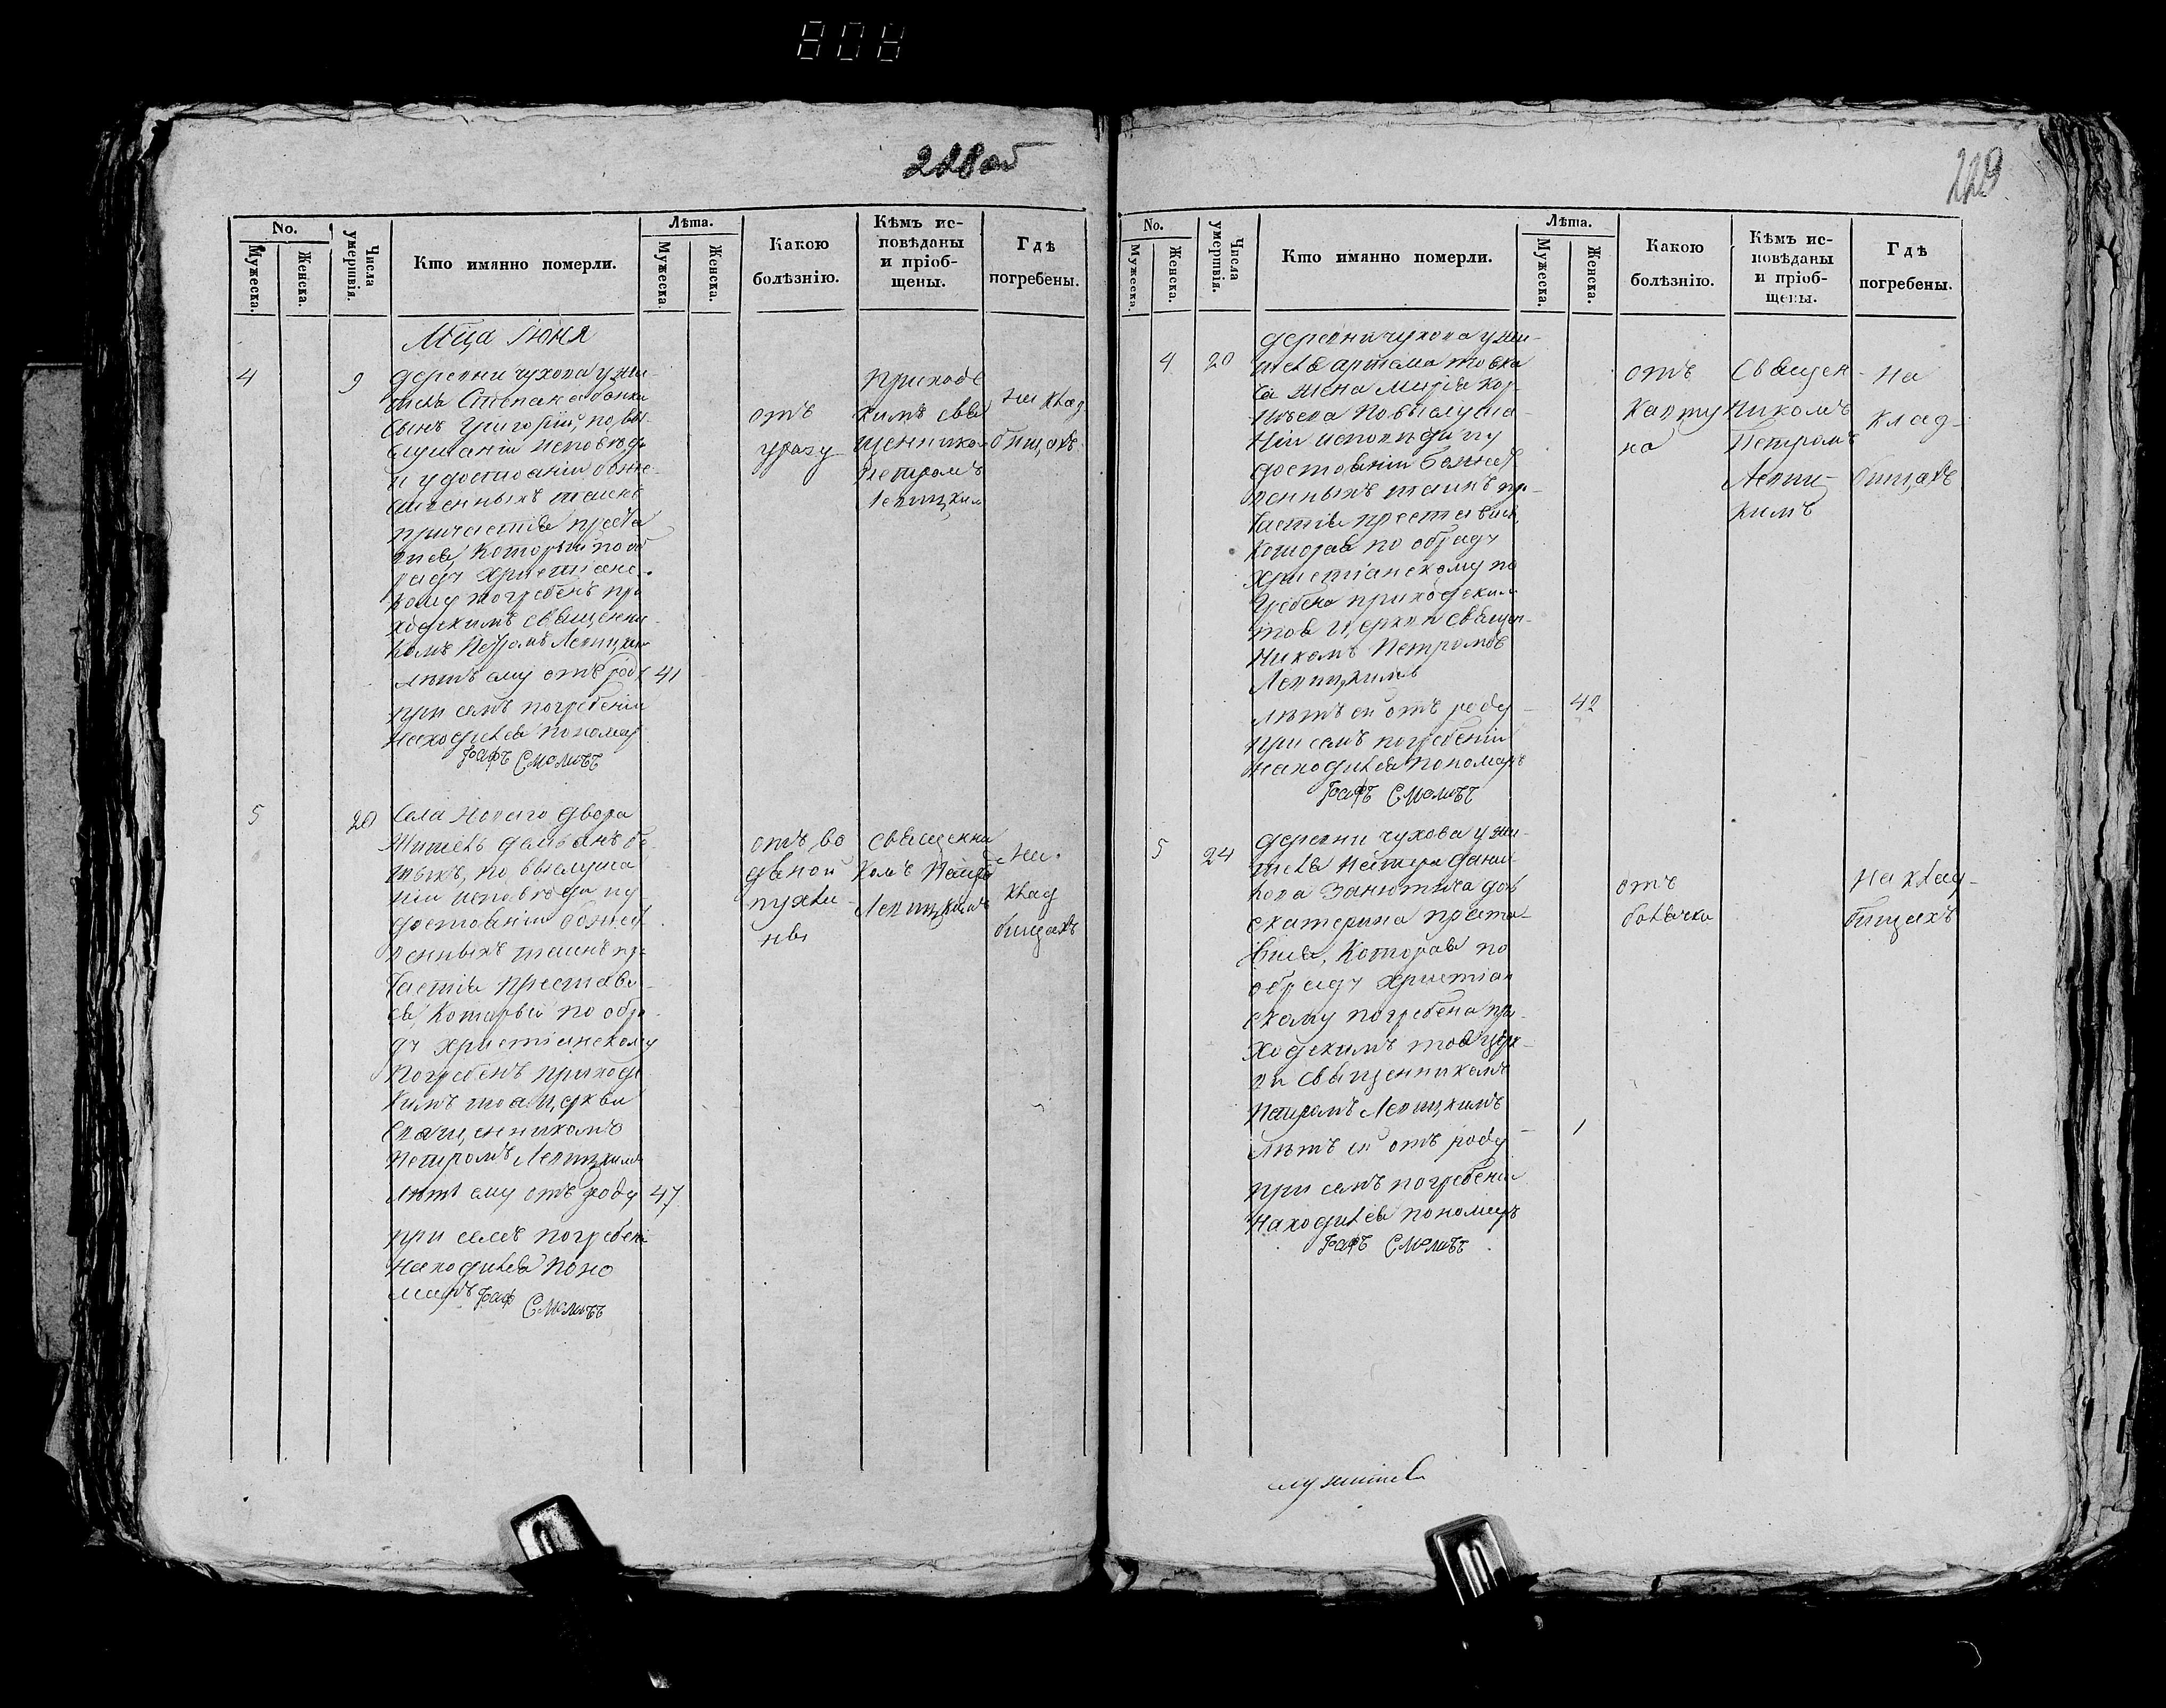 808
228 об
No.
Мужеска.
Женска.
Числа умершвія.
Кто имянно померли.
Лѣта.
Мужеска.
Женска.
Какою
болѣзнію.
Кѣмъ ис-
повѣданы
и пріоб-
щены.
Гдѣ
погребены.
Мца Июня
4
9
деревни чухова ужи
Степана
сынъ Григорій, по вы
слушаніи исповѣди
и удостоаніи боже
ственныхъ таинъ
причастія преста
вися, который по об
ряду христіанс
кому погребенъ при
ходскимъ священни
комъ Петромъ Лепицким
лѣтъ ему отъ роду 41
при семъ погребеніи
находился пономар
отъ
уразу
приходс
кимъ свя
щенником
Петромъ
Лепицким
на клад
бищахъ
5
20
села Нового двора
житель
по выслуша
ніи исповѣди и у
достоаніи божест
венныхъ таинъ пр
частія преставы
ся, который по обря
ду христіанскому
погребенъ приходс
кимъ тоя церкви
священникомъ
Петромъ Лепицкимъ
лѣтъ ему отъ роду 47
при семъ погребені
находился поно
маръ
отъ во
дяной
пухли
ны
священни
комъ Петро
Лепицкимъ
на
клад
бищахъ
229
No.
Мужеска.
Женска.
Числа умершвія.
Кто имянно померли.
Лѣта.
Мужеска.
Женска.
Какою
болѣзнію.
Кѣмъ ис-
повѣданы
и пріоб-
щены.
Гдѣ
погребены.
деревни чухова ужи-
4
20
теля артема
жена Марія
по выслуша-
ніи исповѣди и у
достоаніи божест
венныхъ таинъ пр-
частія преставись,
которая по обряду
христіанскому по
гребена приходским
тоя церкви священ-
никомъ Петромъ
Лепицкимъ
лѣтъ ей отъ роду 42
при семъ погребеніи
находился пономаръ
отъ
колту
на
Священ-
никомъ
Петромъ
Лепиц-
кимъ
на
клад-
бищахъ
5
24
деревни чухова ужи-
теля Петра
дочь
екатерина преста-
вися, которая по
обряду христіан
скому погребена при-
ходскимъ тоя церк-
ви священникомъ
Петромъ Лепицкимъ
лѣтъ ей отъ роду 1
при семъ погребеніи
находился пономаръ
отъ
болячки
на клад-
бищахъ